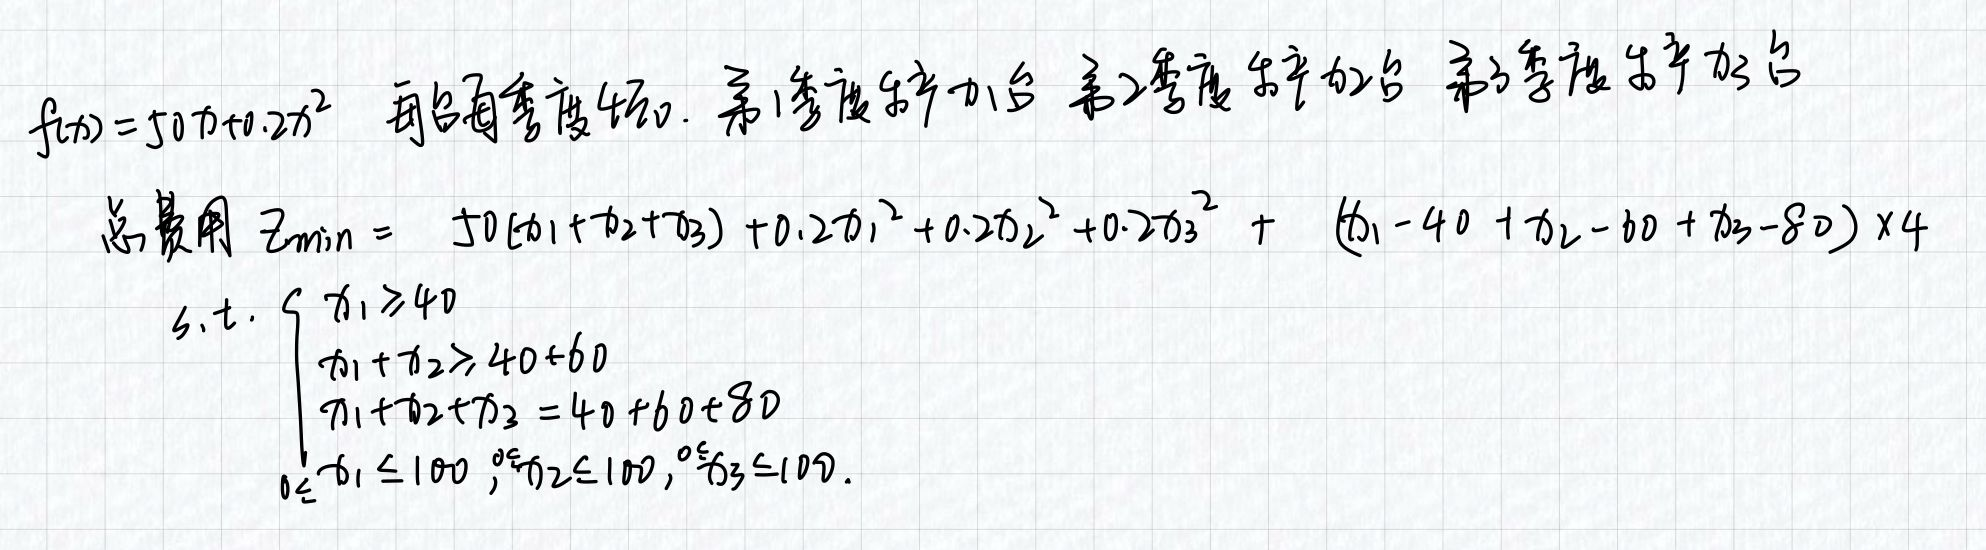 f(x)=50x+0.2x² 每台每季度4元. 第1季度生产x₁台 第2季度生产x₂台 第3季度生产x₃台
总费用 Zmin = 50(x₁+x₂+x₃)+0.2x₁²+0.2x₂²+0.2x₃² + (x₁-40+x₂-60+x₃-80)×4
s.t. { x₁≥40
x₁+x₂≥40+60
x₁+x₂+x₃=40+60+80
0≤x₁≤100, 0≤x₂≤100, 0≤x₃≤100.